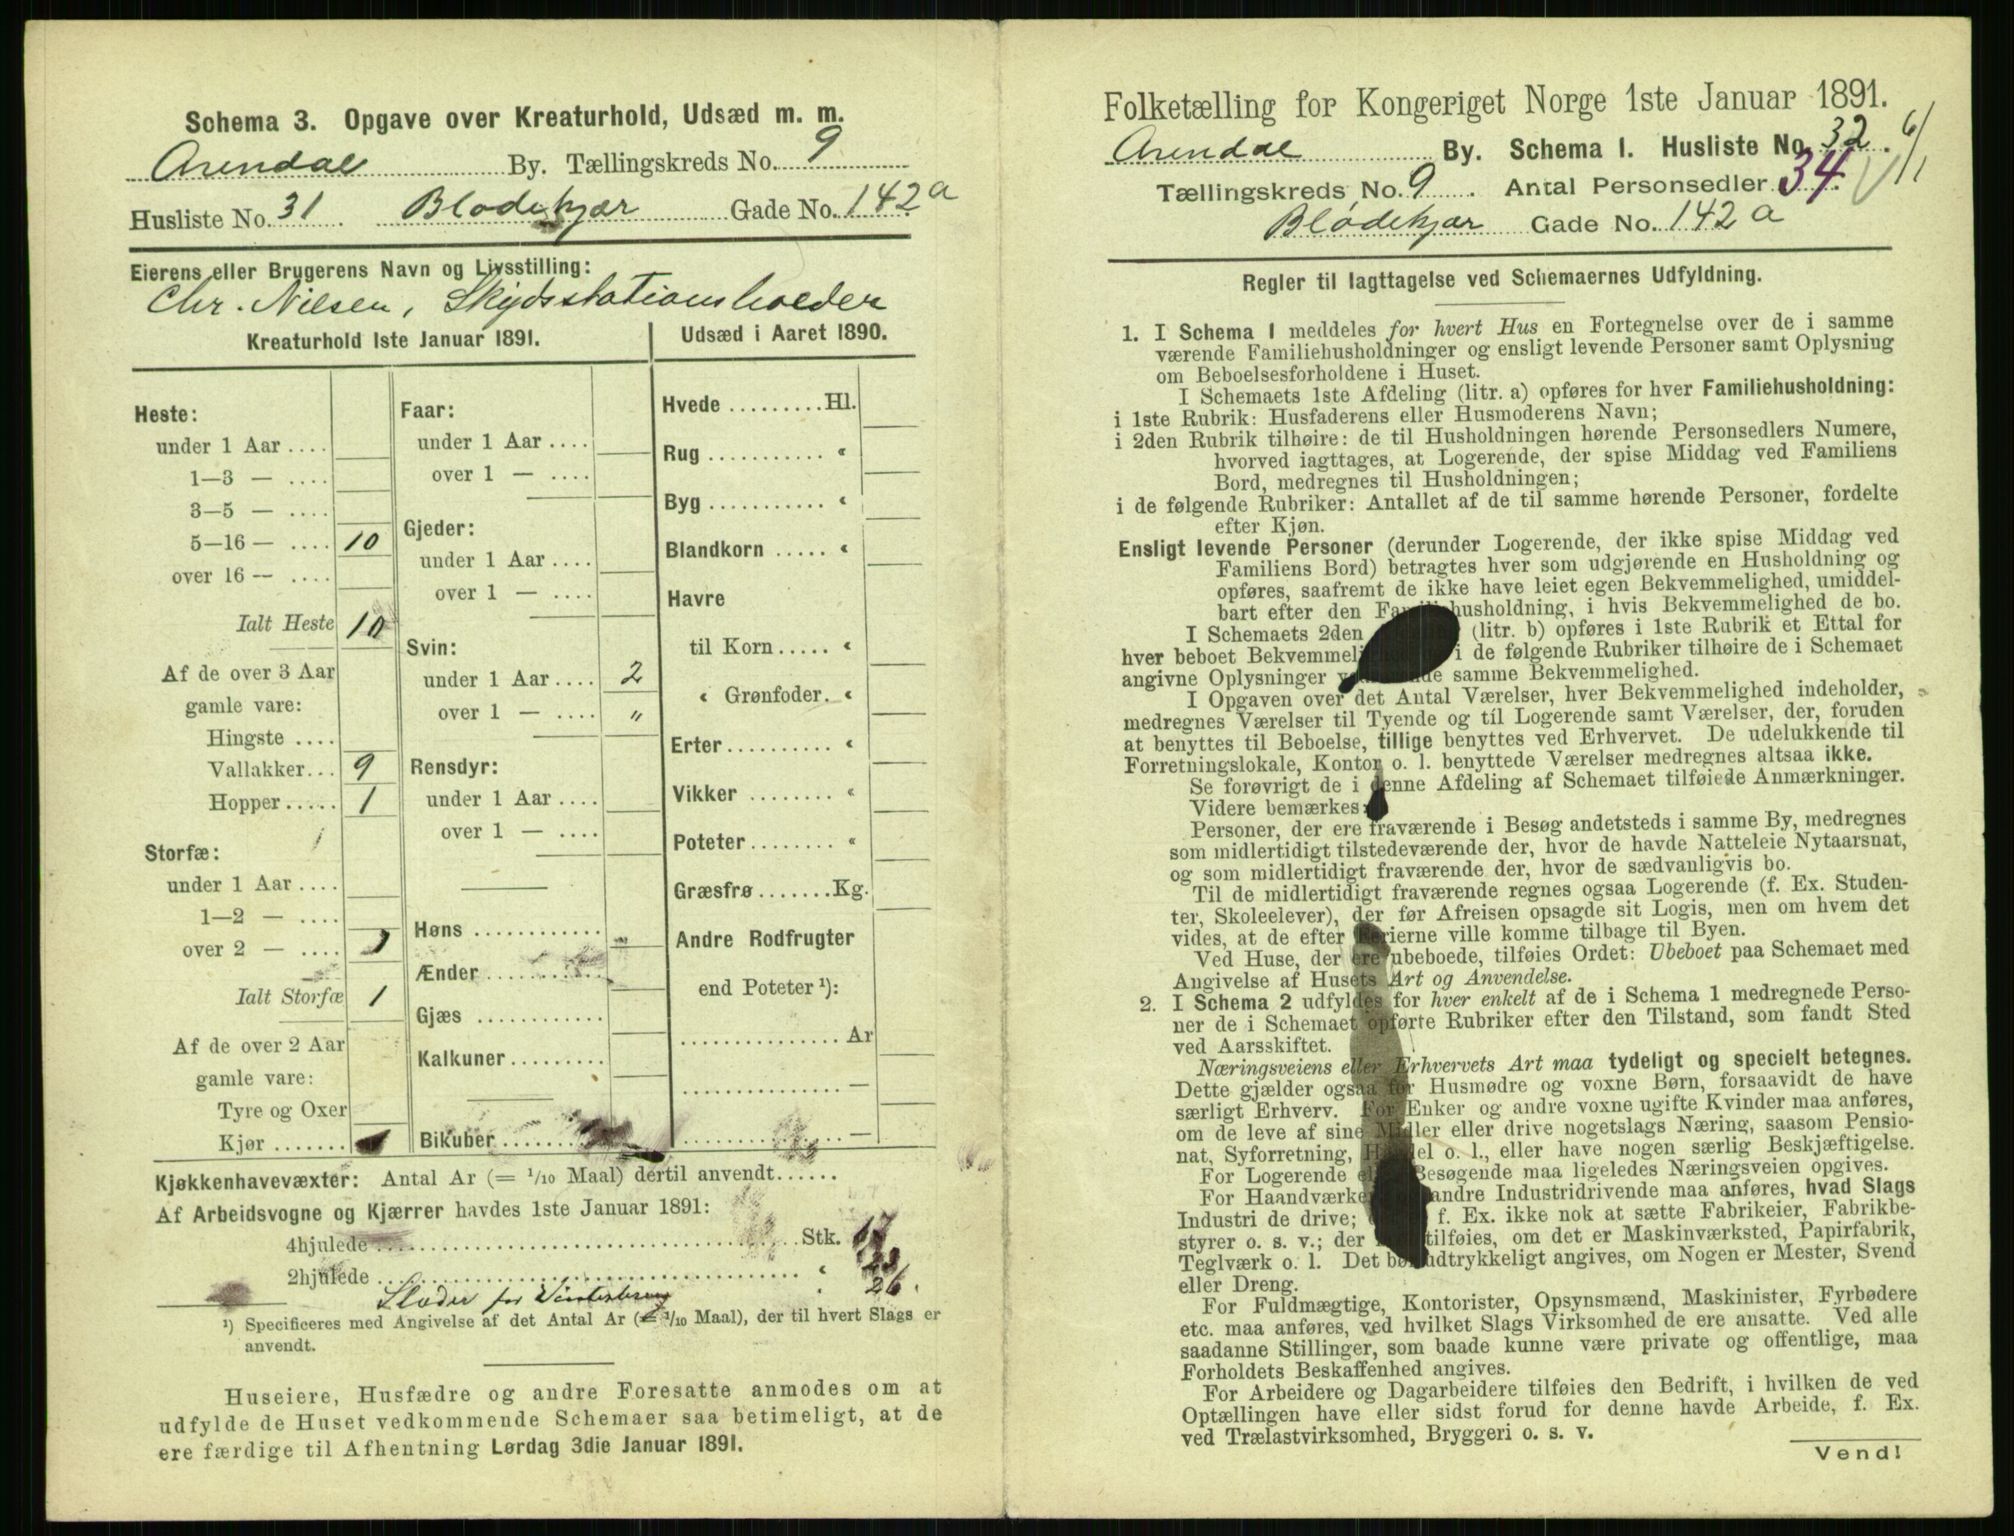 Schema 3. Opgave over Kreaturhold, Udsæd m. m.
Arendal By. Tællingskreds No. 9
Husliste No. 31 Blødekjær Gade No. 142a
Eierens eller Brugerens Navn og Livsstilling:
Chr. Nilsen, Skydsstationsholder
Kreaturhold 1ste Januar 1891.
Heste:
under 1 Aar ....
1—3 — ....
3—5 — ....
5—16 — .... 10
over 16 — ....
Ialt Heste 10
Af de over 3 Aar
gamle vare:
Hingste ....
Vallakker... 9
Hopper ..... 1
Storfæ:
under 1 Aar ....
1—2 — ....
over 2 — ....
Ialt Storfæ 1
Af de over 2 Aar
gamle vare:
Tyre og Oxer
Kjør .......
Faar:
under 1 Aar ....
over 1 — ....
Gjeder:
under 1 Aar ....
over 1 — ....
Svin:
under 1 Aar .... 2
over 1 — .... "
Rensdyr:
under 1 Aar ....
over 1 — ....
Høns ............
Ænder ............
Gjæs ............
Kalkuner .........
Bikuber ..........
Udsæd i Aaret 1890.
Hvede ......... Hl.
Rug ........... «
Byg ........... «
Blandkorn ..... «
Havre
til Korn ..... «
« Grønfoder. «
Erter .......... «
Vikker ........ «
Poteter ........ «
Græsfrø ....... Kg.
Andre Rodfrugter
end Poteter ¹):
............... Ar
............... —
............... —
Kjøkkenhavevæxter: Antal Ar (= 1/10 Maal) dertil anvendt......
Af Arbeidsvogne og Kjærrer havdes 1ste Januar 1891:
4hjulede ........................ Stk. 17
2hjulede ........................ «
Slæder for Vinterbrug 26.
¹) Specificeres med Angivelse af det Antal Ar (= 1/10 Maal), der til hvert Slags er
anvendt.
Huseiere, Husfædre og andre Foresatte anmodes om at
udfylde de Huset vedkommende Schemaer saa betimeligt, at de
ere færdige til Afhentning Lørdag 3die Januar 1891.
Folketælling for Kongeriget Norge 1ste Januar 1891.
Arendal By. Schema 1. Husliste No. 32. 6/1
Tællingskreds No. 9. Antal Personsedler 34.
Blødekjær Gade No. 142 a
Regler til Iagttagelse ved Schemaernes Udfyldning.
1. I Schema 1 meddeles for hvert Hus en Fortegnelse over de i samme
værende Familiehusholdninger og ensligt levende Personer samt Oplysning
om Beboelsesforholdene i Huset.
I Schemaets 1ste Afdeling (litr. a) opføres for hver Familiehusholdning:
i 1ste Rubrik: Husfaderens eller Husmoderens Navn;
i 2den Rubrik tilhøire: de til Husholdningen hørende Personsedlers Numere,
hvorved iagttages, at Logerende, der spise Middag ved Familiens
Bord, medregnes til Husholdningen;
i de følgende Rubriker: Antallet af de til samme hørende Personer, fordelte
efter Kjøn.
Ensligt levende Personer (derunder Logerende, der ikke spise Middag ved
Familiens Bord) betragtes hver som udgjørende en Husholdning og
opføres, saafremt de ikke have leiet egen Bekvemmelighed, umiddel-
bart efter den Familiehusholdning, i hvis Bekvemmelighed de bo.
I Schemaets 2den (litr. b) opføres i 1ste Rubrik et Ettal for
hver beboet Bekvemmelighed i de følgende Rubriker tilhøire de i Schemaet
angivne Oplysninger samme Bekvemmelighed.
I Opgaven over det Antal Værelser, hver Bekvemmelighed indeholder,
medregnes Værelser til Tyende og til Logerende samt Værelser, der, foruden
at benyttes til Beboelse, tillige benyttes ved Erhvervet. De udelukkende til
Forretningslokale, Kontor o. l. benyttede Værelser medregnes altsaa ikke.
Se forøvrigt de i denne Afdeling af Schemaet tilføiede Anmærkninger.
Videre bemærkes:
Personer, der ere fraværende i Besøg andetsteds i samme By, medregnes
som midlertidigt tilstedeværende der, hvor de havde Natteleie Nytaarsnat,
og som midlertidigt fraværende der, hvor de sædvanligvis bo.
Til de midlertidigt fraværende regnes ogsaa Logerende (f. Ex. Studen-
ter, Skoleelever), der før Afreisen opsagde sit Logis, men om hvem det
vides, at de efter Ferierne ville komme tilbage til Byen.
Ved Huse, der ere ubeboede, tilføies Ordet: Ubeboet paa Schemaet med
Angivelse af Husets Art og Anvendelse.
2. I Schema 2 udfyldes for hver enkelt af de i Schema 1 medregnede Perso-
ner de i Schemaet opførte Rubriker efter den Tilstand, som fandt Sted
ved Aarsskiftet.
Næringsveiens eller Erhvervets Art maa tydeligt og specielt betegnes.
Dette gjælder ogsaa for Husmødre og voxne Børn, forsaavidt de have
særligt Erhverv. For Enker og andre voxne ugifte Kvinder maa anføres,
om de leve af sine Midler eller drive nogetslags Næring, saasom Pensio-
nat, Syforretning, Handel o. l., eller have nogen særlig Beskjæftigelse.
For Logerende eller Besøgende maa ligeledes Næringsveien opgives.
For Haandværkere og andre Industridrivende maa anføres, hvad Slags
Industri de drive; f. Ex. ikke nok at sætte Fabrikeier, Fabrikbe-
styrer o. s. v.; der tilføies, om det er Maskinværksted, Papirfabrik,
Teglværk o. l. Det bør udtrykkeligt angives, om Nogen er Mester, Svend
eller Dreng.
For Fuldmægtige, Kontorister, Opsynsmænd, Maskinister, Fyrbødere
etc. maa anføres, ved hvilket Slags Virksomhed de ere ansatte. Ved alle
saadanne Stillinger, som baade kunne være private og offentlige, maa
Forholdets Beskaffenhed angives.
For Arbeidere og Dagarbeidere tilføies den Bedrift, i hvilken de ved
Optællingen have eller sidst forud for denne havde Arbeide, f. Ex.
ved Trælastvirksomhed, Bryggeri o. s. v.
Vend!